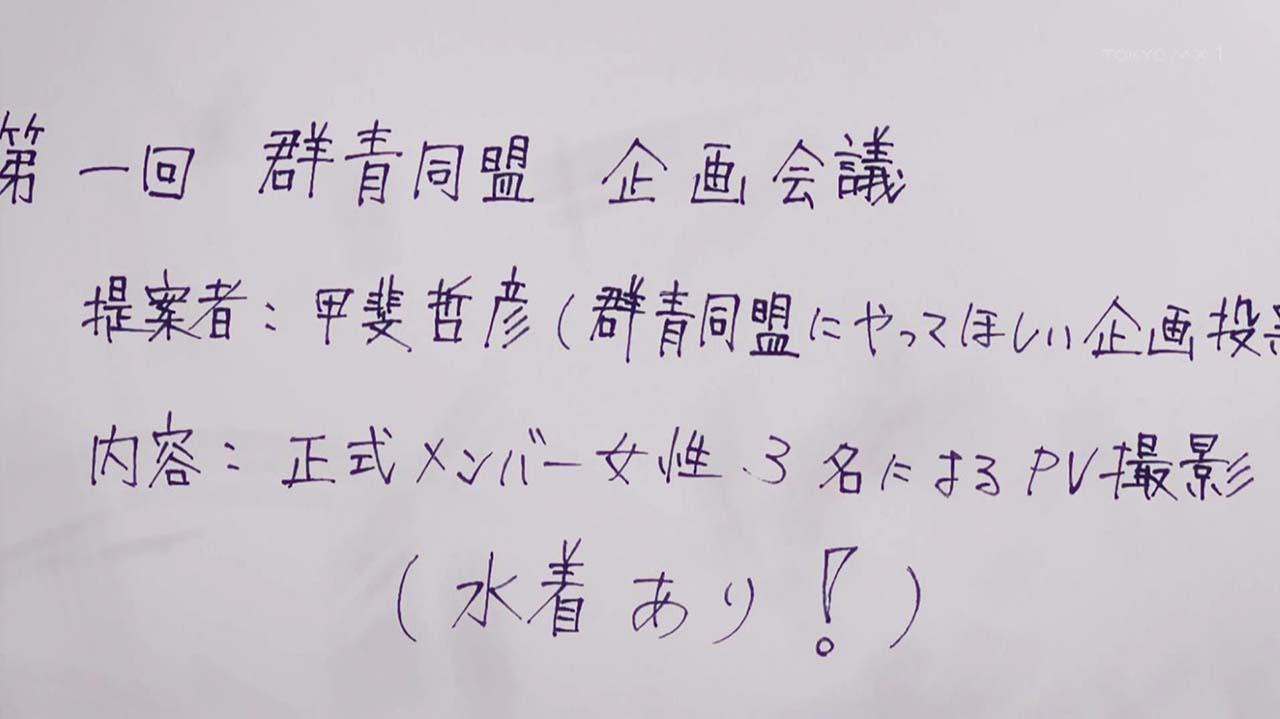 TOKYO MX 1
第一回 群青同盟 企画会議
提案者:甲斐哲彦(群青同盟にやってほしい企画投票
内容:正式メンバー女性3名によるPV撮影
(水着あり!)